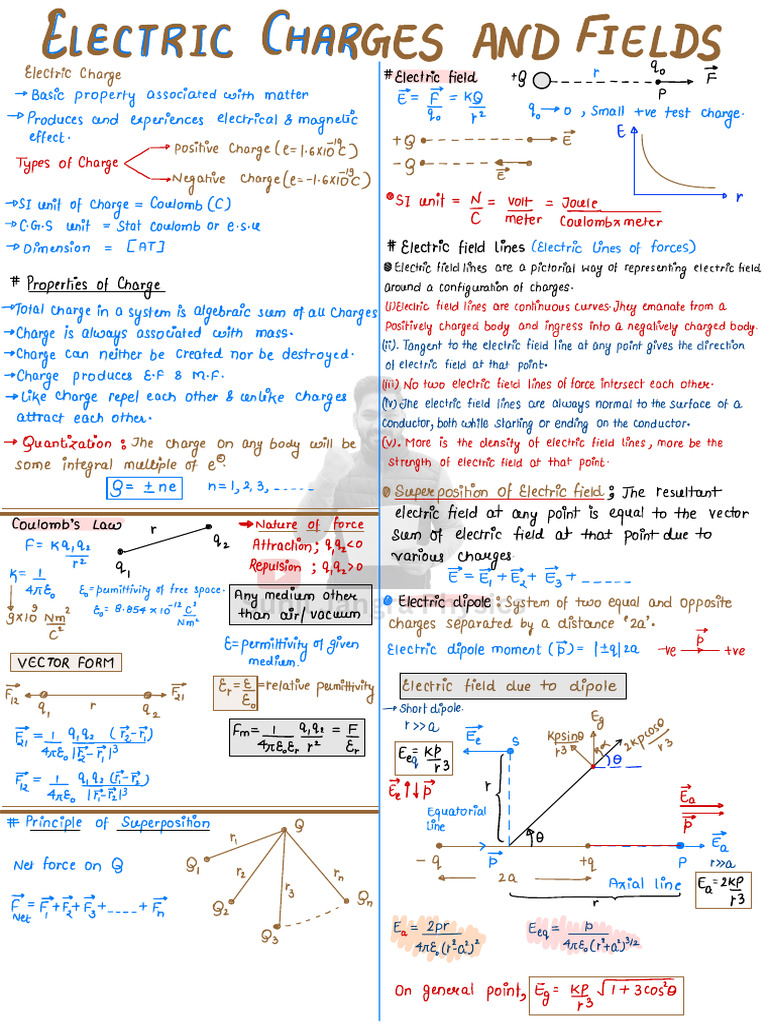 ELECTRIC CHARGES AND FIELDS
Electric Charge
→ Basic property associated with matter
→ Produces and experiences electrical & magnetic
effect.
Types of Charge
Positive Charge (e = 1.6×10⁻¹⁹C)
Negative charge (e = -1.6×10⁻¹⁹C)
→ SI unit of Charge = Coulomb (C)
→ C.G.S unit = Stat coulomb or e.s.u
→ Dimension = [AT]
# Properties of Charge
→ Total charge in a system is algebraic sum of all Charges
→ Charge is always associated with mass.
→ Charge can neither be created nor be destroyed.
→ Charge produces E.F & M.F.
→ Like Charge repel each other & unlike charges
attract each other.
→ Quantization: The charge on any body will be
some integral multiple of e⊖.
Q = ± ne n = 1, 2, 3, -----
Coulomb's Law
F = Kq₁q₂/r²
r
q₁
q₂
K = 1/4πε₀
9×10⁹ Nm²/C²
ε₀ = permittivity of free space.
ε₀ = 8.854×10⁻¹² C²/Nm²
→ Nature of force
Attraction; q₁q₂<0
Repulsion; q₁q₂>0
Any medium other
than air/vacuum
ε = permittivity of given
medium.
εr = ε/ε₀ = relative permittivity
Fm = 1/4πε₀εr q₁q₂/r² = F/εr
VECTOR FORM
F⃗₁₂ q₁ r q₂ F⃗₂₁
F⃗₂₁ = 1/4πε₀ q₁q₂ (r⃗₂-r⃗₁)/|r⃗₂-r⃗₁|³
F⃗₁₂ = 1/4πε₀ q₁q₂ (r⃗₁-r⃗₂)/|r⃗₁-r⃗₂|³
# Principle of Superposition
Net force on Q
F⃗Net = F⃗₁+F⃗₂+F⃗₃+----+F⃗n
Q
Q₁
Q₂
Q₃
Qn
r₁
r₂
r₃
rn
# Electric field
E⃗ = F⃗/q₀ = KQ/r²
+Q r q₀ P F⃗
q₀ → 0, Small +ve test charge.
+Q E⃗
-Q E⃗
E
r
SI unit = N/C = volt/meter = Joule/Coulomb×meter
# Electric field lines (Electric Lines of forces)
Electric field lines are a pictorial way of representing electric field
around a configuration of charges.
(i) Electric field lines are continuous curves. They emanate from a
Positively charged body and ingress into a negatively charged body.
(ii). Tangent to the electric field line at any point gives the direction
of electric field at that point.
(iii) No two electric field lines of force intersect each other.
(iv) The electric field lines are always normal to the surface of a
conductor, both while starting or ending on the conductor.
(v). More is the density of electric field lines, more be the
strength of electric field at that point.
Superposition of Electric field; The resultant
electric field at any point is equal to the vector
sum of electric field at that point due to
various charges.
E⃗ = E⃗₁ + E⃗₂ + E⃗₃ + -----
Electric dipole: System of two equal and opposite
charges separated by a distance '2a'.
Electric dipole moment (p⃗) = |±q|2a
-ve p⃗ +ve
Electric field due to dipole
→ Short dipole.
r>>a
Eeq = KP/r³
E⃗e ↑↓ p⃗
E⃗e
S
Equatorial
line
r
Kpsinθ/r³
Eg
α
2Kpcosθ/r³
θ
θ
E⃗a
p⃗
-q p⃗ +q P E⃗a
2a
r
Axial line
r>>a
Ea = 2KP/r³
Ea = 2pr/4πε₀(r²-a²)²
Eeq = p/4πε₀(r²+a²)^3/2
On general point, E⃗g = KP/r³ √1+3cos²θ